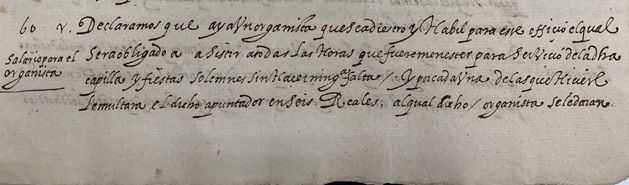 60 v. Declaramos que aya Un organista que sea diestro y Habil para este offiçio el qual
Salario para el organista
sera obligado a asistir a todas las Horas que fuere menester para servicio de la dha
capilla y fiestas solemnes sin Hacer ning.ª falta / Y por cada Una de las que Hiçiere
se multara el dicho apuntador en seis Reales, al qual dicho / organista se le daran